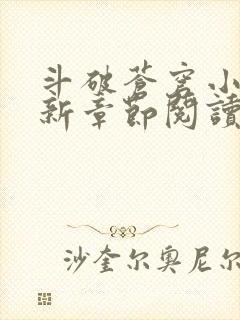 斗破苍穹小
新章节阅读
沙奎尔奥尼尔